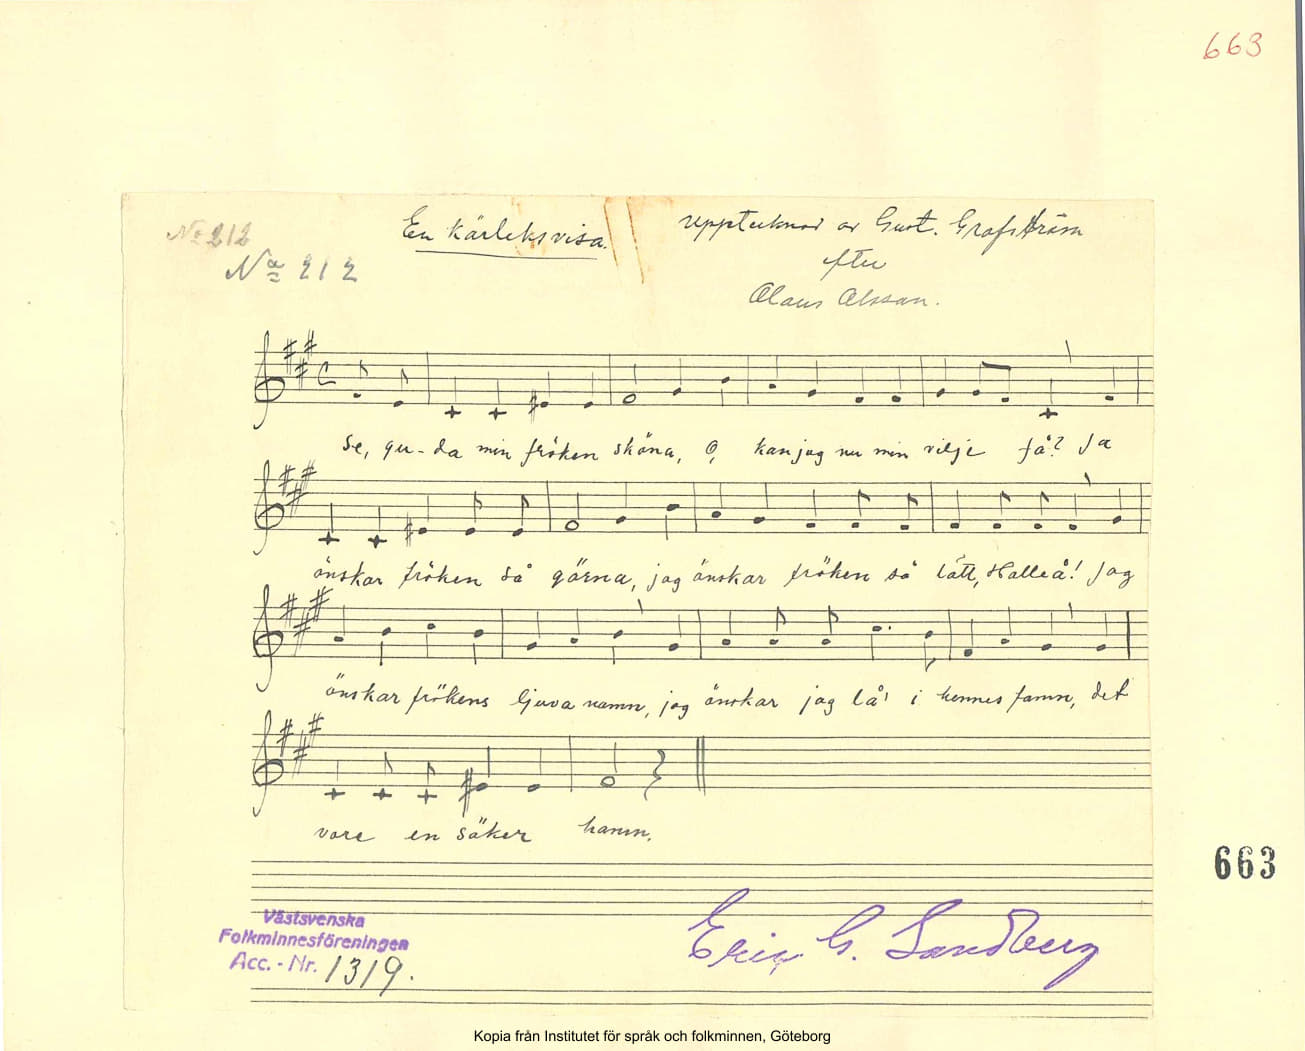 663
No 212
Na 212
En kärleksvisa.
upptecknad av Gust. Grafström
efter
Olaus Olsson.
Se, gu-da min fröken sköna, O, kan jag nu min vilje få? Ja
önskar fröken så gärna, jag önskar fröken så lätt, Halleå! Jag
önskar frökens ljuva namn, jag önskar jag lå' i hennes famn, det
vore en säker hamn.
663
Västsvenska
Folkminnesföreningen
Acc. - Nr. 1319.
Eric G. Sandberg
Kopia från Institutet för språk och folkminnen, Göteborg